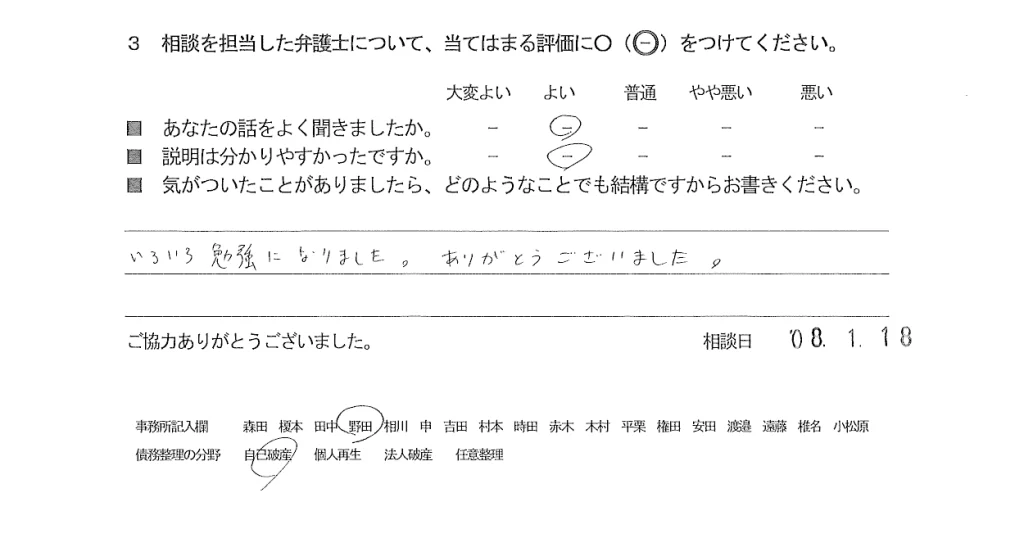 3 相談を担当した弁護士について、当てはまる評価に〇（㊀）をつけてください。
大変よい よい 普通 やや悪い 悪い
■ あなたの話をよく聞きましたか。 － － － － －
■ 説明は分かりやすかったですか。 － － － － －
■ 気がついたことがありましたら、どのようなことでも結構ですからお書きください。
いろいろ勉強になりました。ありがとうございました。
ご協力ありがとうございました。 相談日 '08. 1. 18
事務所記入欄 森田 榎本 田中 野田 相川 申 吉田 村本 時田 赤木 木村 平栗 権田 安田 渡邉 遠藤 椎名 小松原
債務整理の分野 自己破産 個人再生 法人破産 任意整理